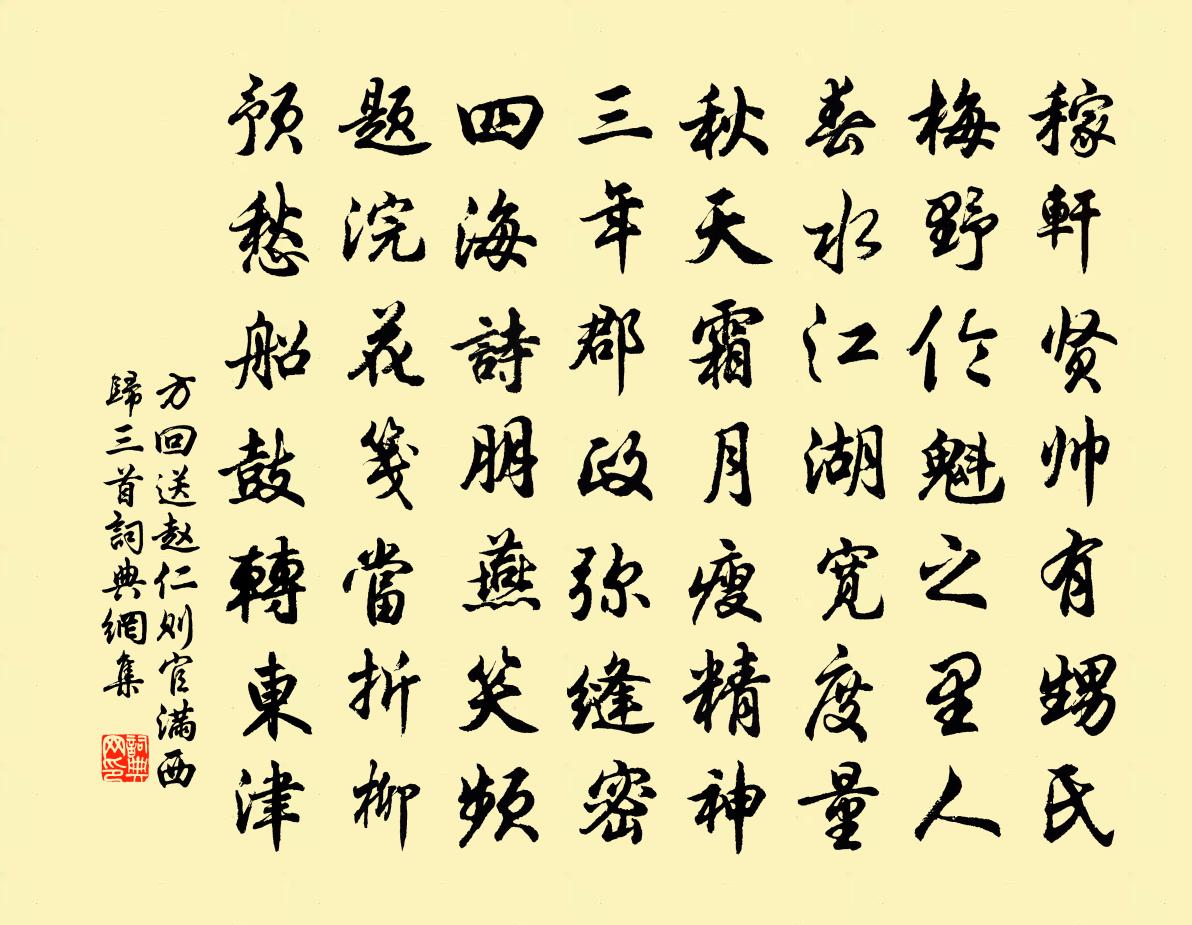 稼軒贤帅有甥民
梅野伦魁之里人
春水江湖宽度量
秋天霜月瘦精神
三年郡政弥缝密
四海詩朋燕笑频
题浣花箋當折柳
预愁船鼓轉東津
方回送赵仁则官满西
歸三首詞典網集
詞典网印